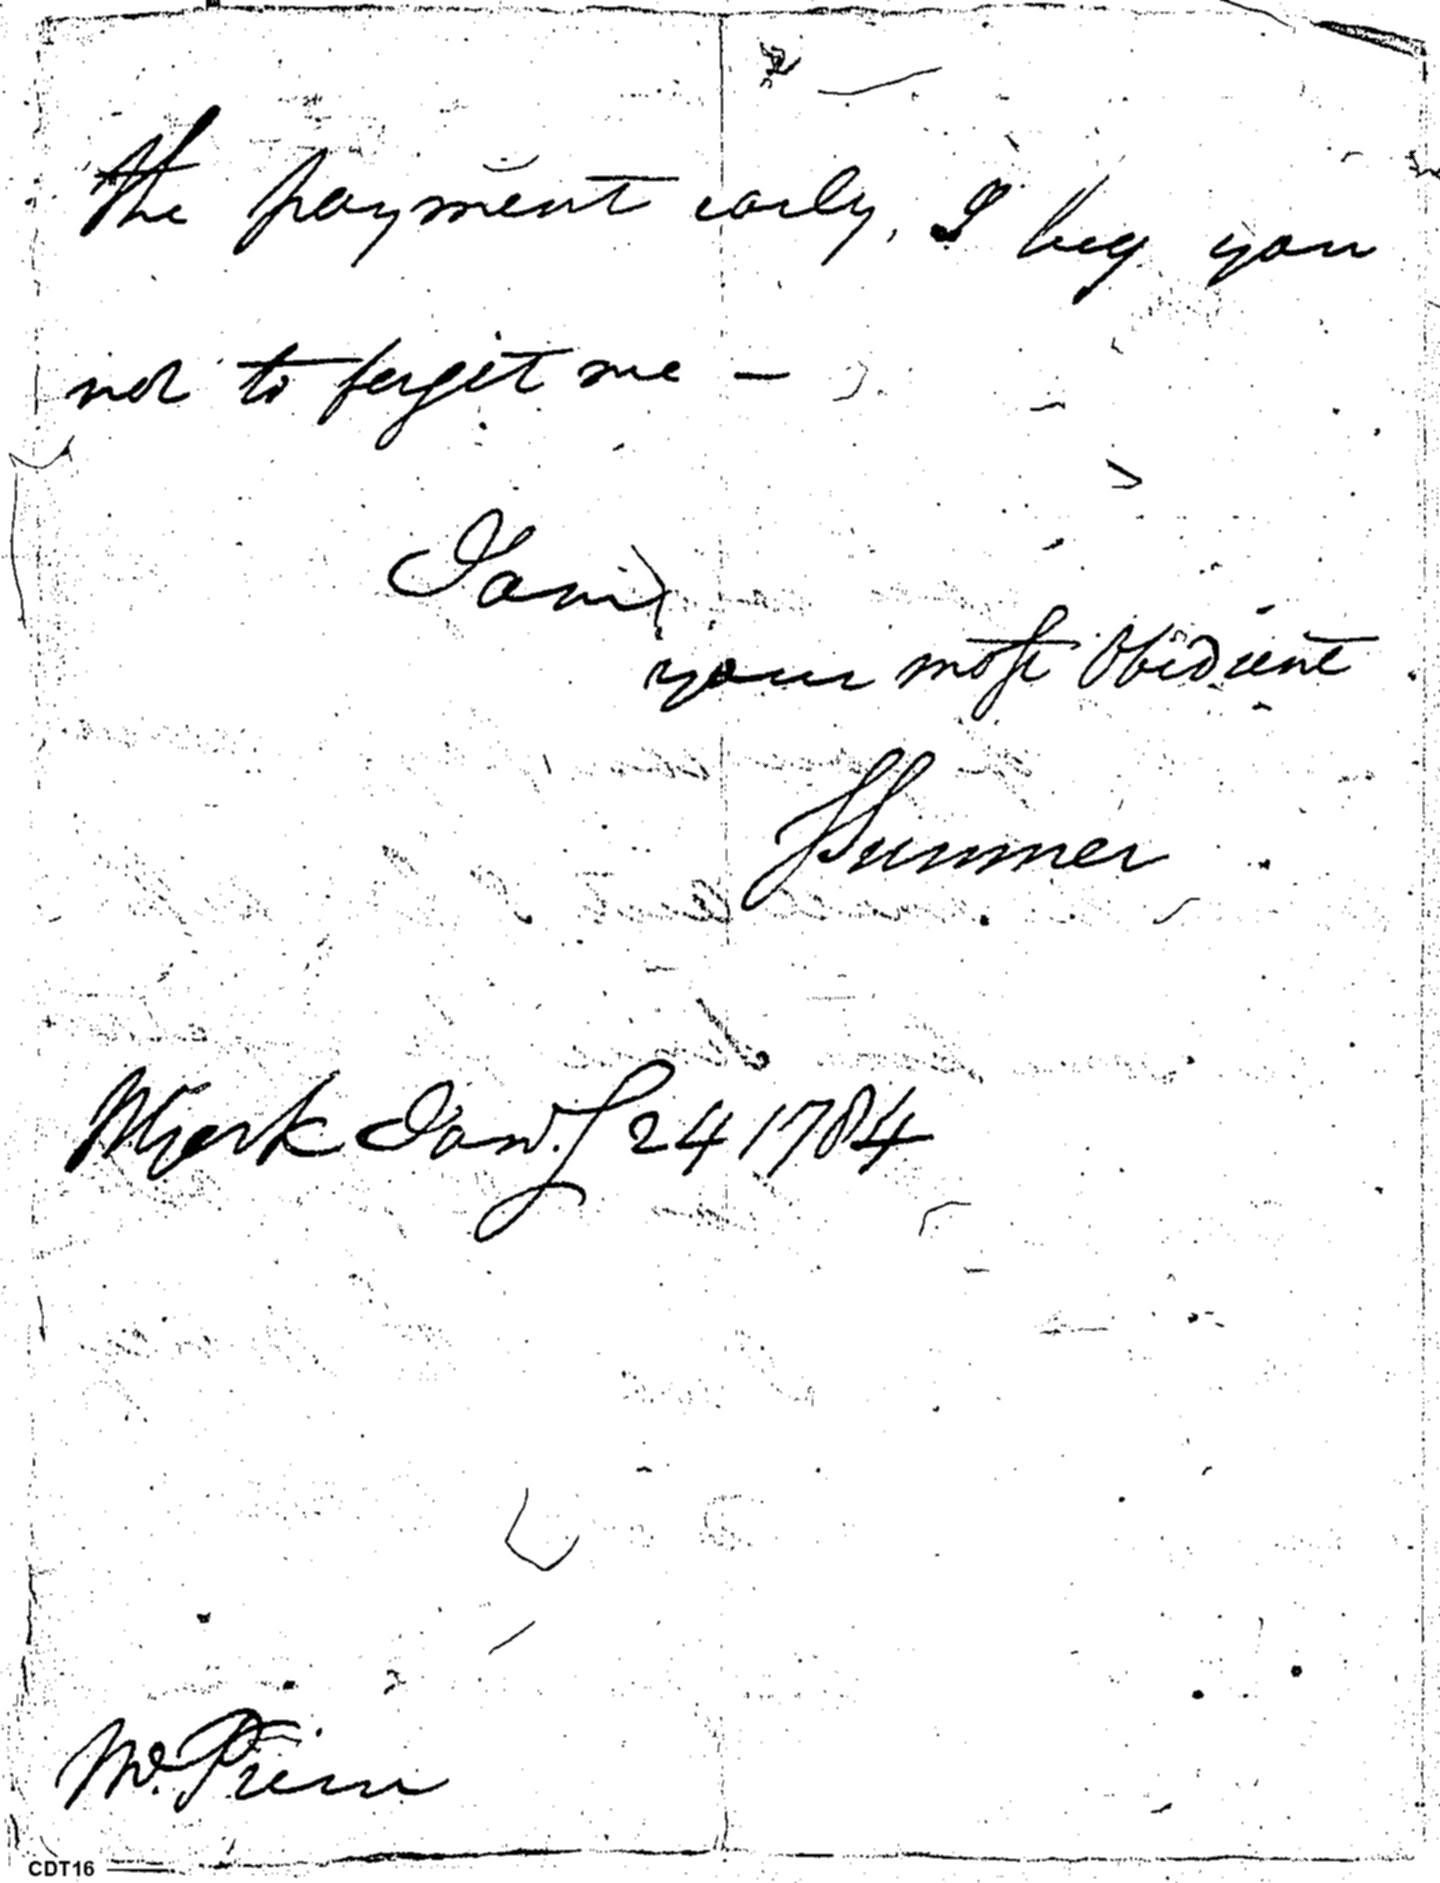 the payment early, I beg you
not to forget me —
I am
your most Obedient
Sumner
Jan.y 24 1784
Mr.
CDT16